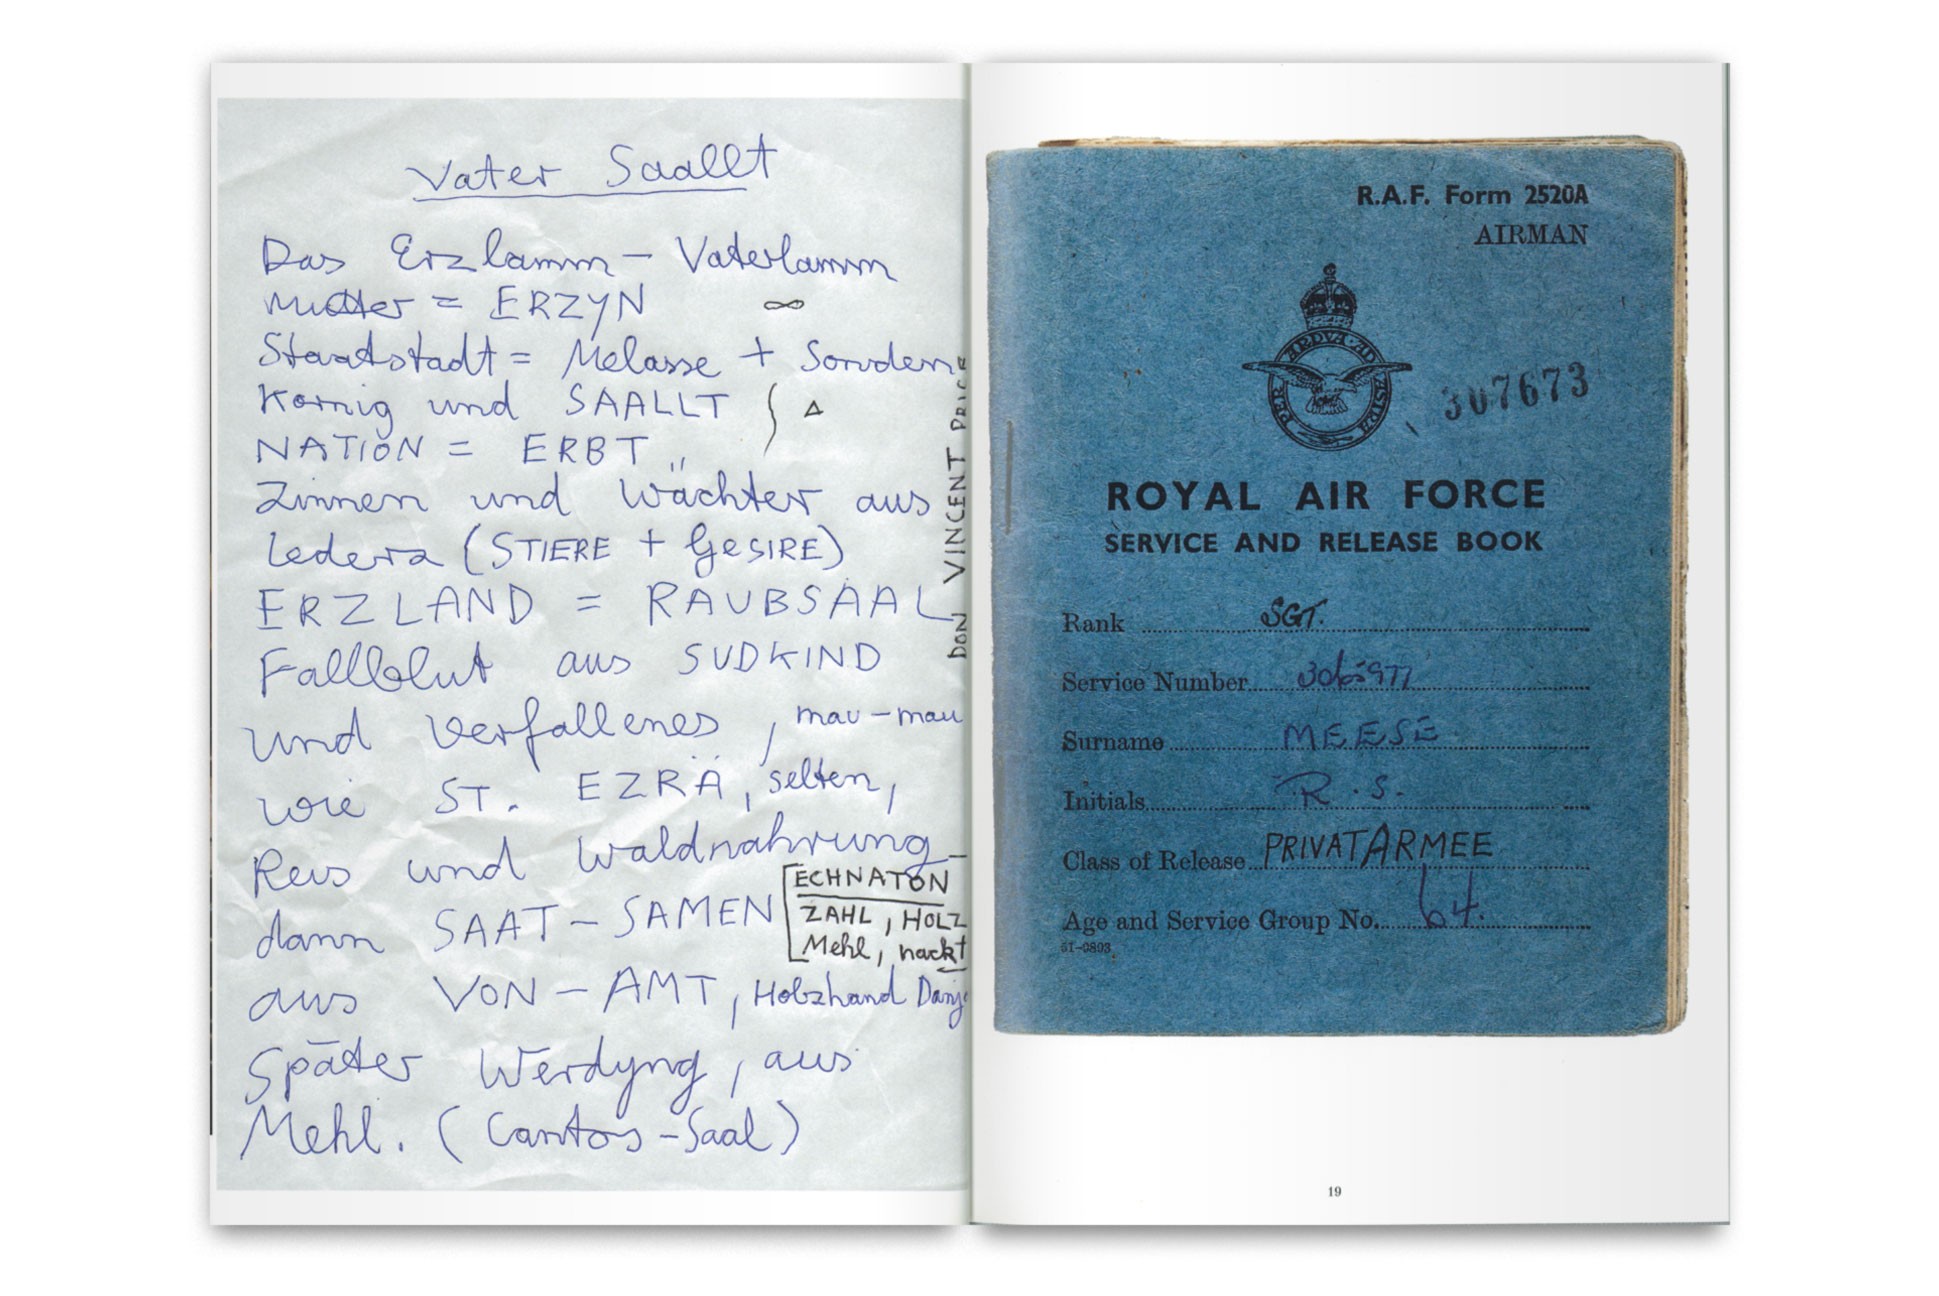 Vater Saallt
Das Erzlamm – Vaterlamm
Mutter = ERZYN ∞
Staatstadt = Melasse + Sondern
König und SAALLT Δ
NATION = ERBT
Zinnen und Wächter aus
Ledera (STIERE + GESIRE)
ERZLAND = RAUBSAAL
Fallblut aus SUDKIND
und Verfallenes, mau-mau
wie ST. EZRÄ, selten,
Reis und Waldnahrung –
dann SAAT-SAMEN
aus VON-AMT, Holzhand
Später Werdyng, aus
Mehl. (Cantos-Saal)
ECHNATON
ZAHL, HOLZ
Mehl, nackt
DON VINCENT PRICE
R.A.F. Form 2520A
AIRMAN
PER ARDVA AD ASTRA
307673
ROYAL AIR FORCE
SERVICE AND RELEASE BOOK
Rank SGT.
Service Number
Surname MEESE
Initials R.S.
Class of Release PRIVATARMEE
Age and Service Group No. 64.
51-0893
19